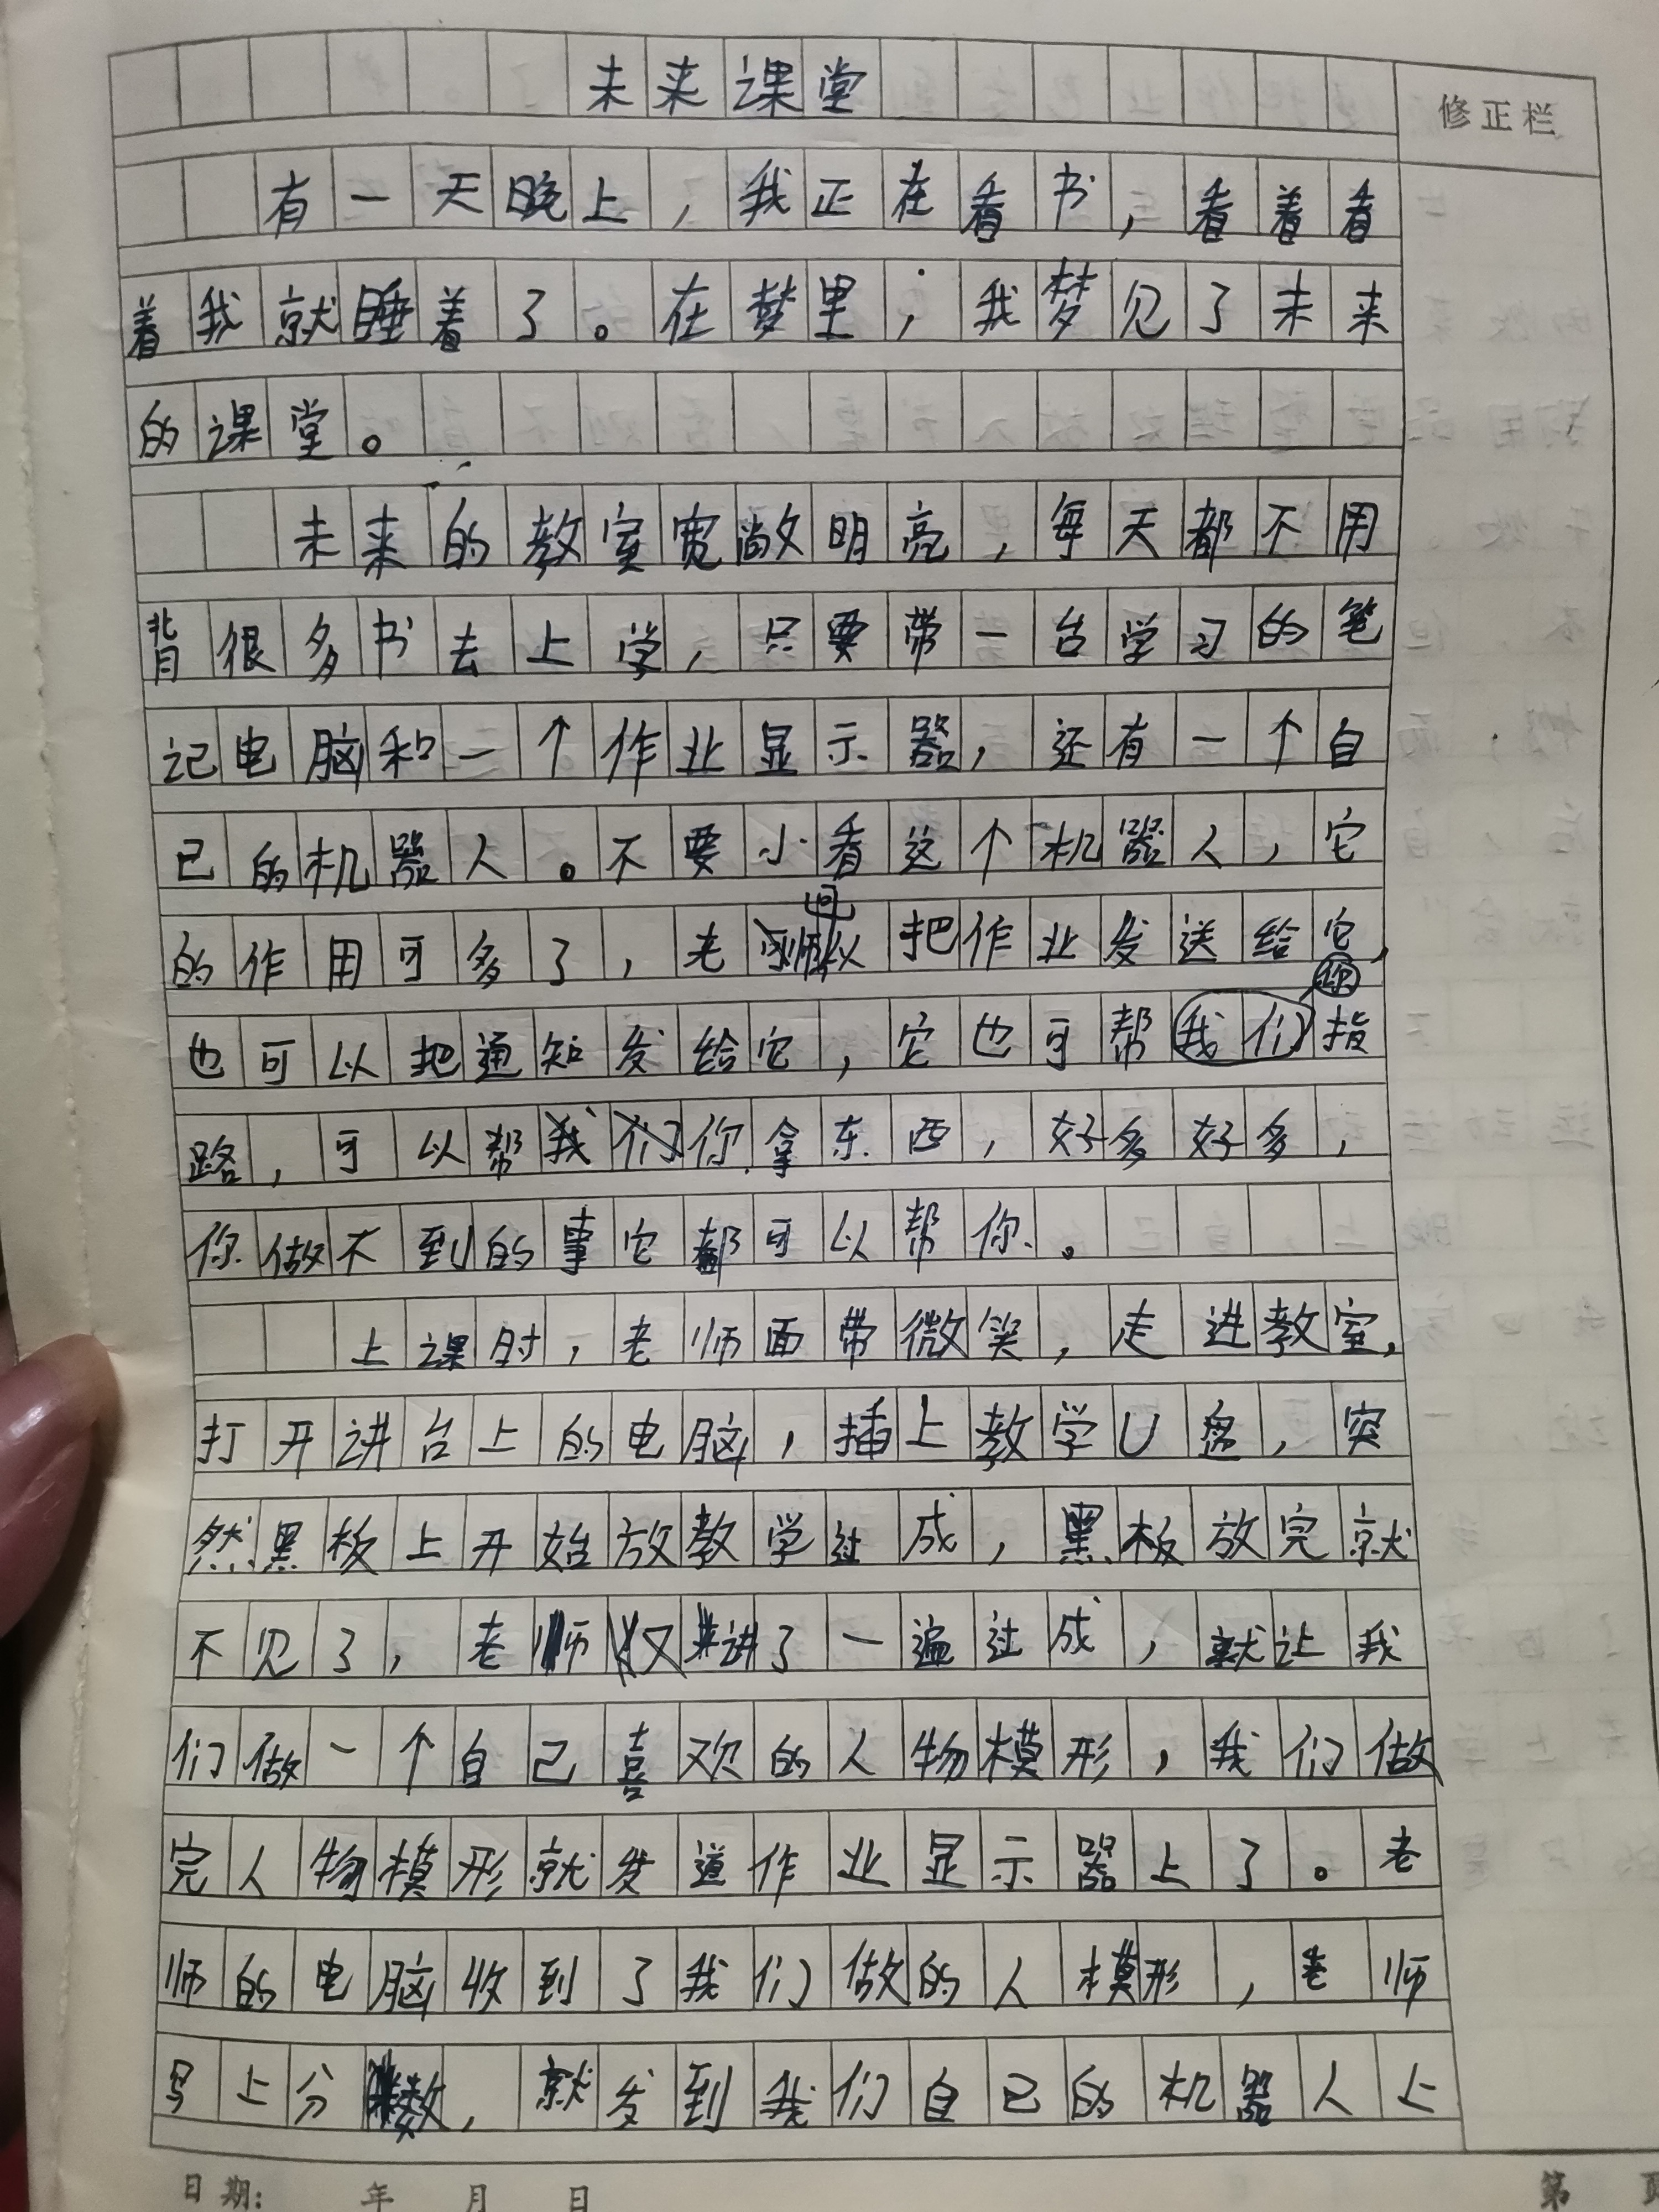 未来课堂
修正栏
有一天晚上，我正在看书，看着看
着我就睡着了。在梦里，我梦见了未来
的课堂。
未来的教室宽敞明亮，每天都不用
背很多书去上学，只要带一台学习的笔
记电脑和一个作业显示器，还有一个自
己的机器人。不要小看这个机器人，它
的作用可多了，老师可以把作业发送给它，
也可以把通知发给它，它也可帮你指
路，可以帮你拿东西，好多好多，
你做不到的事它都可以帮你。
上课时，老师面带微笑，走进教室，
打开讲台上的电脑，插上教学U盘，突
然黑板上开始放教学过成，黑板放完就
不见了，老师又讲了一遍过成，就让我
们做一个自己喜欢的人物模形，我们做
完人物模形就发道作业显示器上了。老
师的电脑收到了我们做的人模形，老师
写上分数，就发到我们自己的机器人上
日期： 年 月 日
第 页